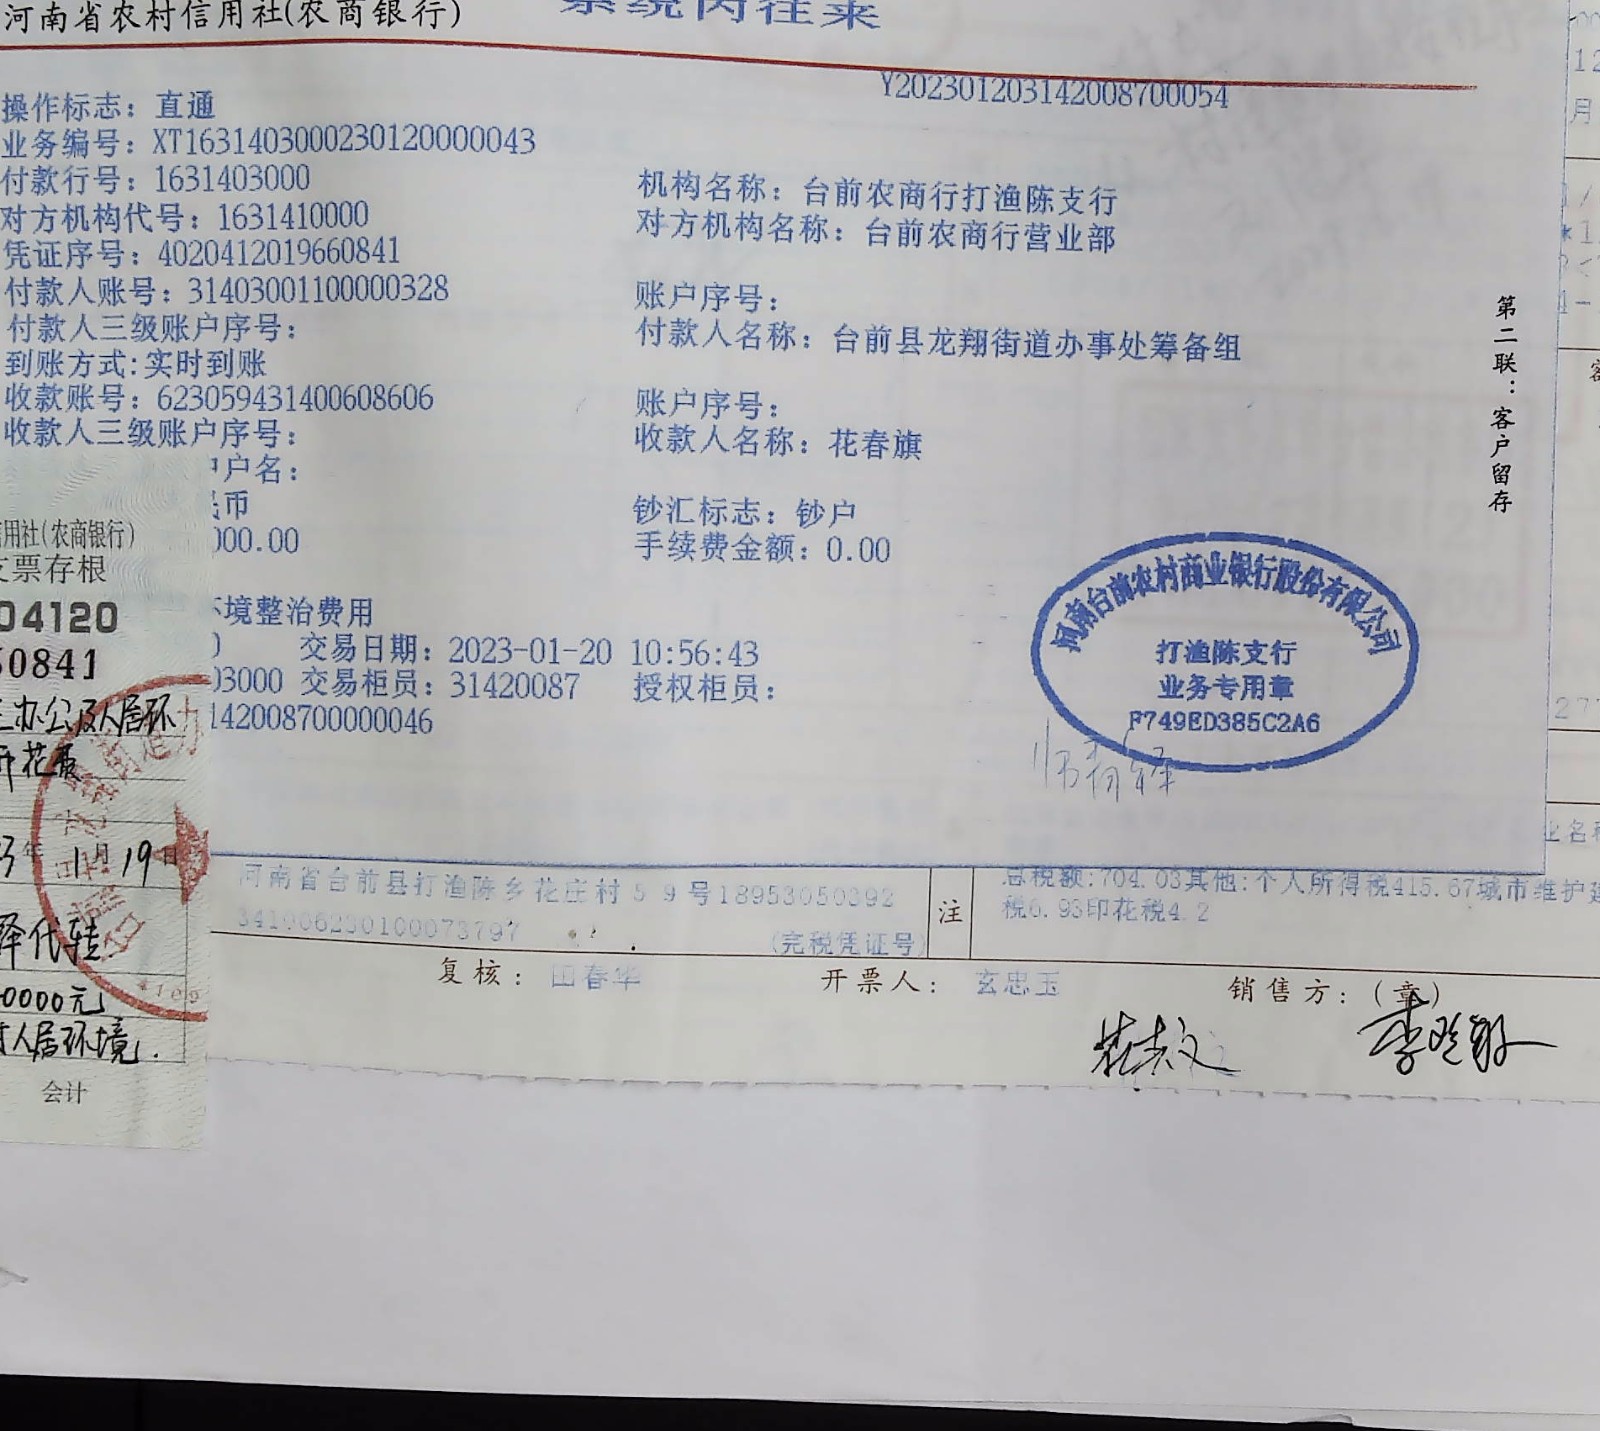 河南省农村信用社(农商银行)
系统内往来
Y202301203142008700054
操作标志：直通
业务编号：XT1631403000230120000043
付款行号：1631403000
机构名称：台前农商行打渔陈支行
对方机构代号：1631410000
对方机构名称：台前农商行营业部
凭证序号：4020412019660841
付款人账号：31403001100000328
账户序号：
付款人三级账户序号：
付款人名称：台前县龙翔街道办事处筹备组
到账方式:实时到账
收款账号：623059431400608606
账户序号：
收款人三级账户序号：
收款人名称：花春旗
户名：
币
钞汇标志：钞户
000.00
手续费金额：0.00
环境整治费用
交易日期：2023-01-20 10:56:43
03000 交易柜员：31420087 授权柜员：
142008700000046
第二联：客户留存
河南台前农村商业银行股份有限公司
打渔陈支行
业务专用章
F749ED385C2A6
用社(农商银行)
支票存根
04120
60841
办公及人居环
年 1月19日
代转
0000元
人居环境.
会计
河南省台前县打渔陈乡花庄村59号18953050392
341006230100073797
(完税凭证号)
注
总税额:704.03其他:个人所得税415.67城市维护建
税6.93印花税4.2
复核： 田春华
开票人： 玄忠玉
销售方：(章)